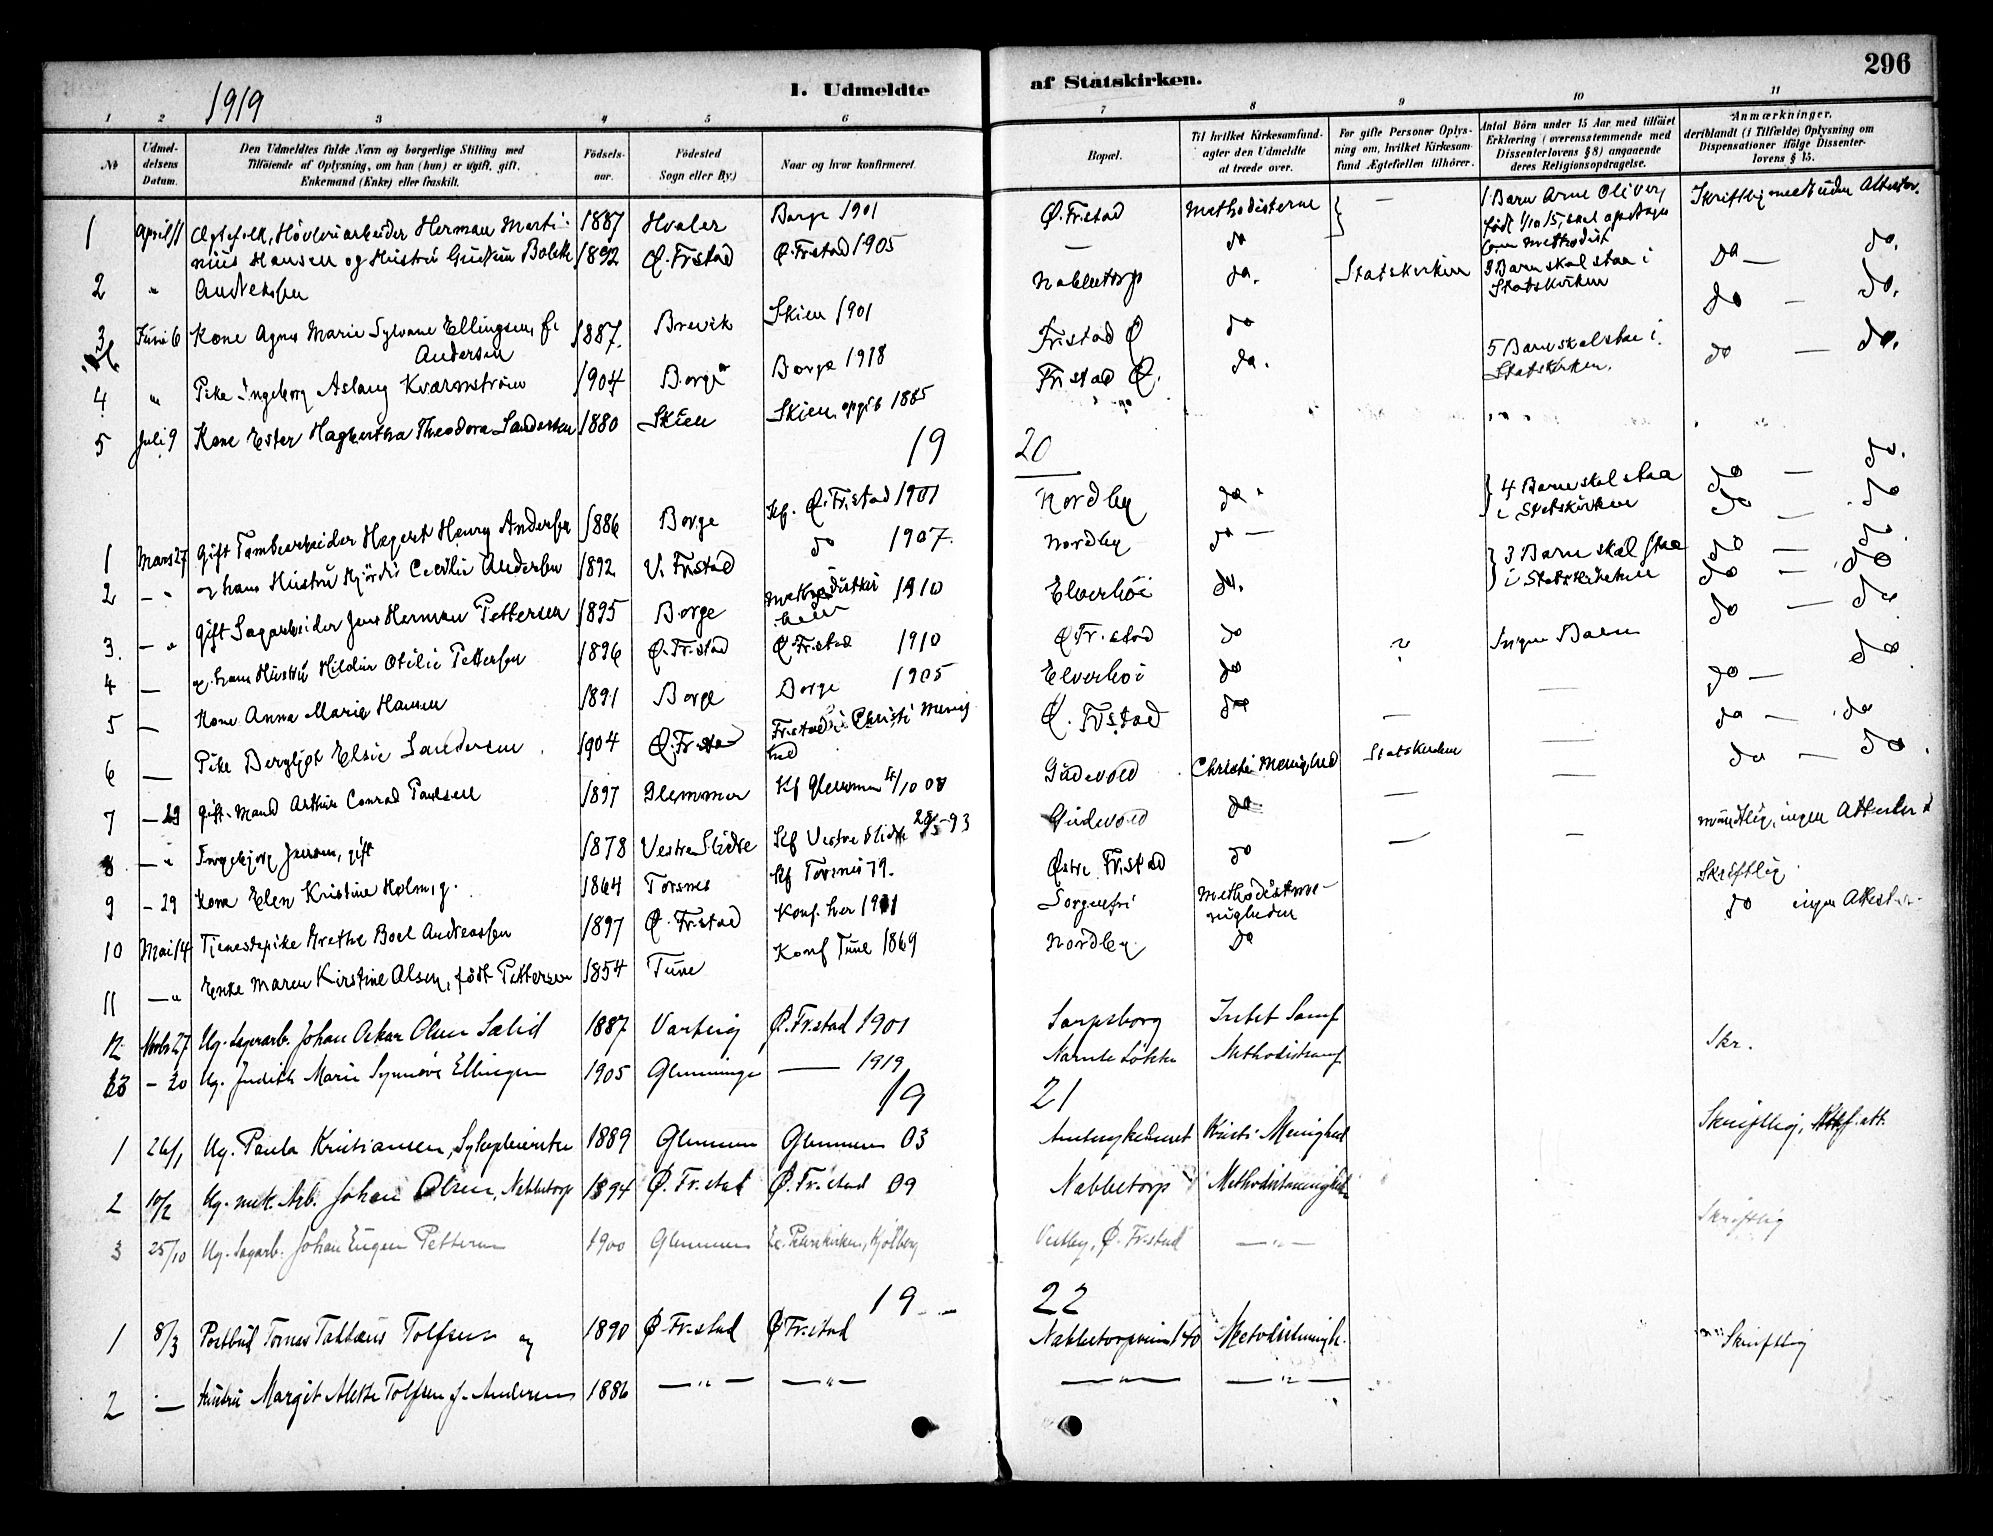 296
1919
I. Udmeldte af Statskirken.
1 2 3 4 5 6 7 8 9 10 11
№
Udmel-
delsens
Datum.
Den Udmeldtes fulde Navn og borgerlige Stilling med
Tilføiende af Oplysning, om han (hun) er ugift, gift,
Enkemand (Enke) eller fraskilt.
Fødsels-
aar.
Fødested
Sogn eller By.)
Naar og hvor konfirmeret.
Bopæl.
Til hvilket Kirkesamfund
agter den Udmeldte
at træde over.
For gifte Personer Oplys-
ning om, hvilket Kirkesam-
fund Ægtefællen tilhører.
Antal Børn under 15 Aar med tilføiet
Erklæring (overensstemmende med
Dissenterlovens § 8) angaaende
deres Religionsopdragelse.
Anmærkninger,
deriblandt (i Tilfælde) Oplysning om
Dispensationer ifølge Dissenter-
lovens § 15.
1 April 11 Høvleriarbeider Herman Marti- 1887 Hvaler Borge 1901 Ø. Fr.stad Methodisterne — 1 Barn Arne Oliver, Skriftlig med uden Attester.
født 1/10 15, skal opdrages
som Methodist
nius Hansen og Hustru Gudrun Bolette 1892 Ø. Fr.stad Ø. Fr.stad 1905 — do
2 " Andreassen Nabbetorp do. Statskirken Barn skal staa i do — do.
Statskirken
3 Juni 6 Kone Agnes Marie Sylvane Ellingsen, f. 1887. Brevik Skien 1901 Fr.stad Ø do do — do.
Andersen
4 " Pike Ingeborg Aslaug Kvarnstrøm 1904 Borge Borge 1918 Fr.stad Ø. do. 5 Barn skal staa i do — do.
Statskirken.
5 Juli 9 Kone Ester Hagbertha Theodora Sandersen 1880 Skien Skien 1885
19 20
1 Mars 27 Gift Tomtearbeider Hagert Henry Andersen 1886 Borge Kf. Ø. Fr.stad 1901 Nordby do. 4 Barn skal staa do — do.
i Statskirken
2 — " og hans Hustru Hjørdis Cecilie Andersen 1892 V. Fr.stad do 1907. Nordby do — do — do
3. — " Gift Sagarbeider Jens Herman Pettersen 1895 Borge 1910 Elverhøi do. 3 Barn skal staa do — do
i Statskirken
4 — og hans Hustru Hildur Otilie Pettersen 1896 Ø. Fr.stad Ø Fr.stad 1910 Ø Fr.stad do ? Ingen Barn do — do
5 — Kone Anna Marie Hansen 1891 Borge Borge 1905 Elverhøi do do — do
6 — Pike Bergljot Elsie Sandersen 1904 Ø. Fr.stad Fr.stad i Christi Menig Ø. Fr.stad do — do — do
hed
7 — 29 gift. Mand Arthur Conrad Paulsen 1897 Glemmen Kf Glemmen 4/10 08 Gudevold Christi Menighed Statskirken do — do
8 — " Ingebjorg Jensen, gift 1878 Vestre Slidre Kf Vestre Slidre 28/5-93 Gudevold do — mundtlig, ingen Attester
9 — 29 Kone Elen Kristine Holm, g. 1864 Torsnes Kf Torsnes 79. Østre Fr.stad do — — Skriftlig
10 Mai 14 Tjenestepike Grethe Boel Andreassen 1897 Ø. Fr.stad Konf. her 1911 Sorgenfri Methodistme- do ingen Attester
nigheden
11 — " Enke Maren Kirstine Olsen, født Pettersen 1854 Tune Konf Tune 1869 Nordby do
12 Novbr 27 Ug. Sagarb. Johan Oskar Olsen Solid 1887 Varteig Ø. Fr.stad 1901 Sarpsborg Intet Samf
13 — 20 Ug. Judith Marie Synnøve Ellingsen 1905 Glemminge — 1919 Methodistsamf Skr.
19 21
1 26/1 Ug. Paula Kristiansen, Sykepleierske 1889 Glemmen Glemmen 03 Amtsykehuset Kristi Menighed Skriftlig, att.
2 10/2 Ug. mek. Arb. Johan Olsen, Nabbetorp 1894 Ø. Fr.stad Ø. Fr.stad 09 Nabbetorp Methodistmenighed
3 25/10 Ug. Sagarb. Johan Eugen Pettersen 1900 Glemmen Kjølberg Ø. Fr.stad — " — Skriftlig
19 22
1 8/3 Postbud Tolfsen og 1890 Ø Fr.stad Ø Fr.stad Nabbetorpveien 140 Metodistmenigh. Skriftlig
2 — Hustru Margit Alette Tolfsen f. Andersen 1886 — " — — " — — " — — " —